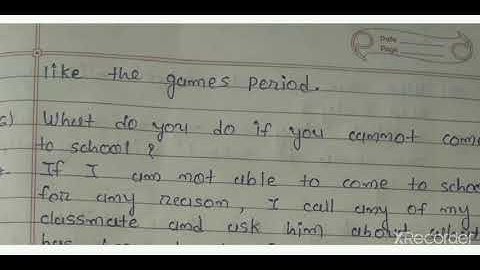 Date
Page
like the games period.
s) What do you do if you cannot come
to school?
If I am not able to come to schoo
for any reason, I call any of my
classmate and ask him about
has
XRecorder